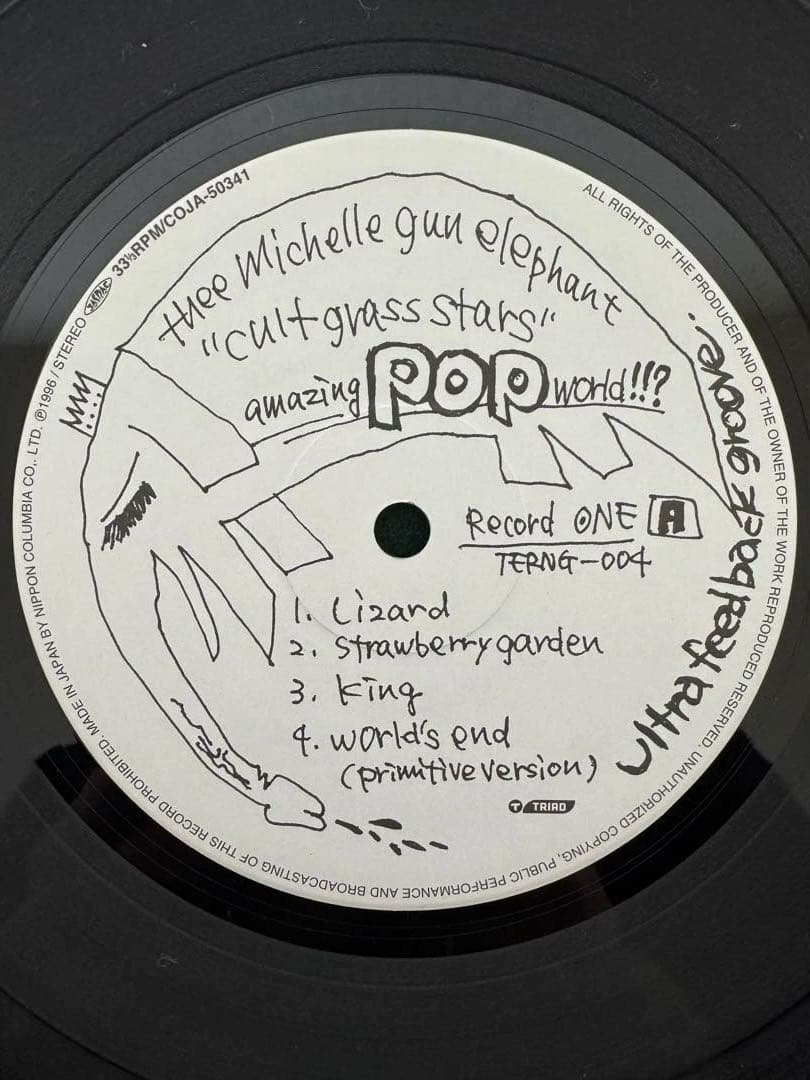 thee Michelle gun elephant
"cult grass stars"
amazing POP world!!?
Record ONE A
TERNG-004
1. Lizard
2. strawberry garden
3. king
4. world's end
(primitive version)
ultra feed back groove.
T TRIAD
MADE IN JAPAN BY NIPPON COLUMBIA CO,. LTD. ℗1996/STEREO JASRAC 33⅓RPM/COJA-50341
ALL RIGHTS OF THE PRODUCER AND OF THE OWNER OF THE WORK REPRODUCED RESERVED. UNAUTHORIZED COPYING, PUBLIC PERFORMANCE AND BROADCASTING OF THIS RECORD PROHIBITED.